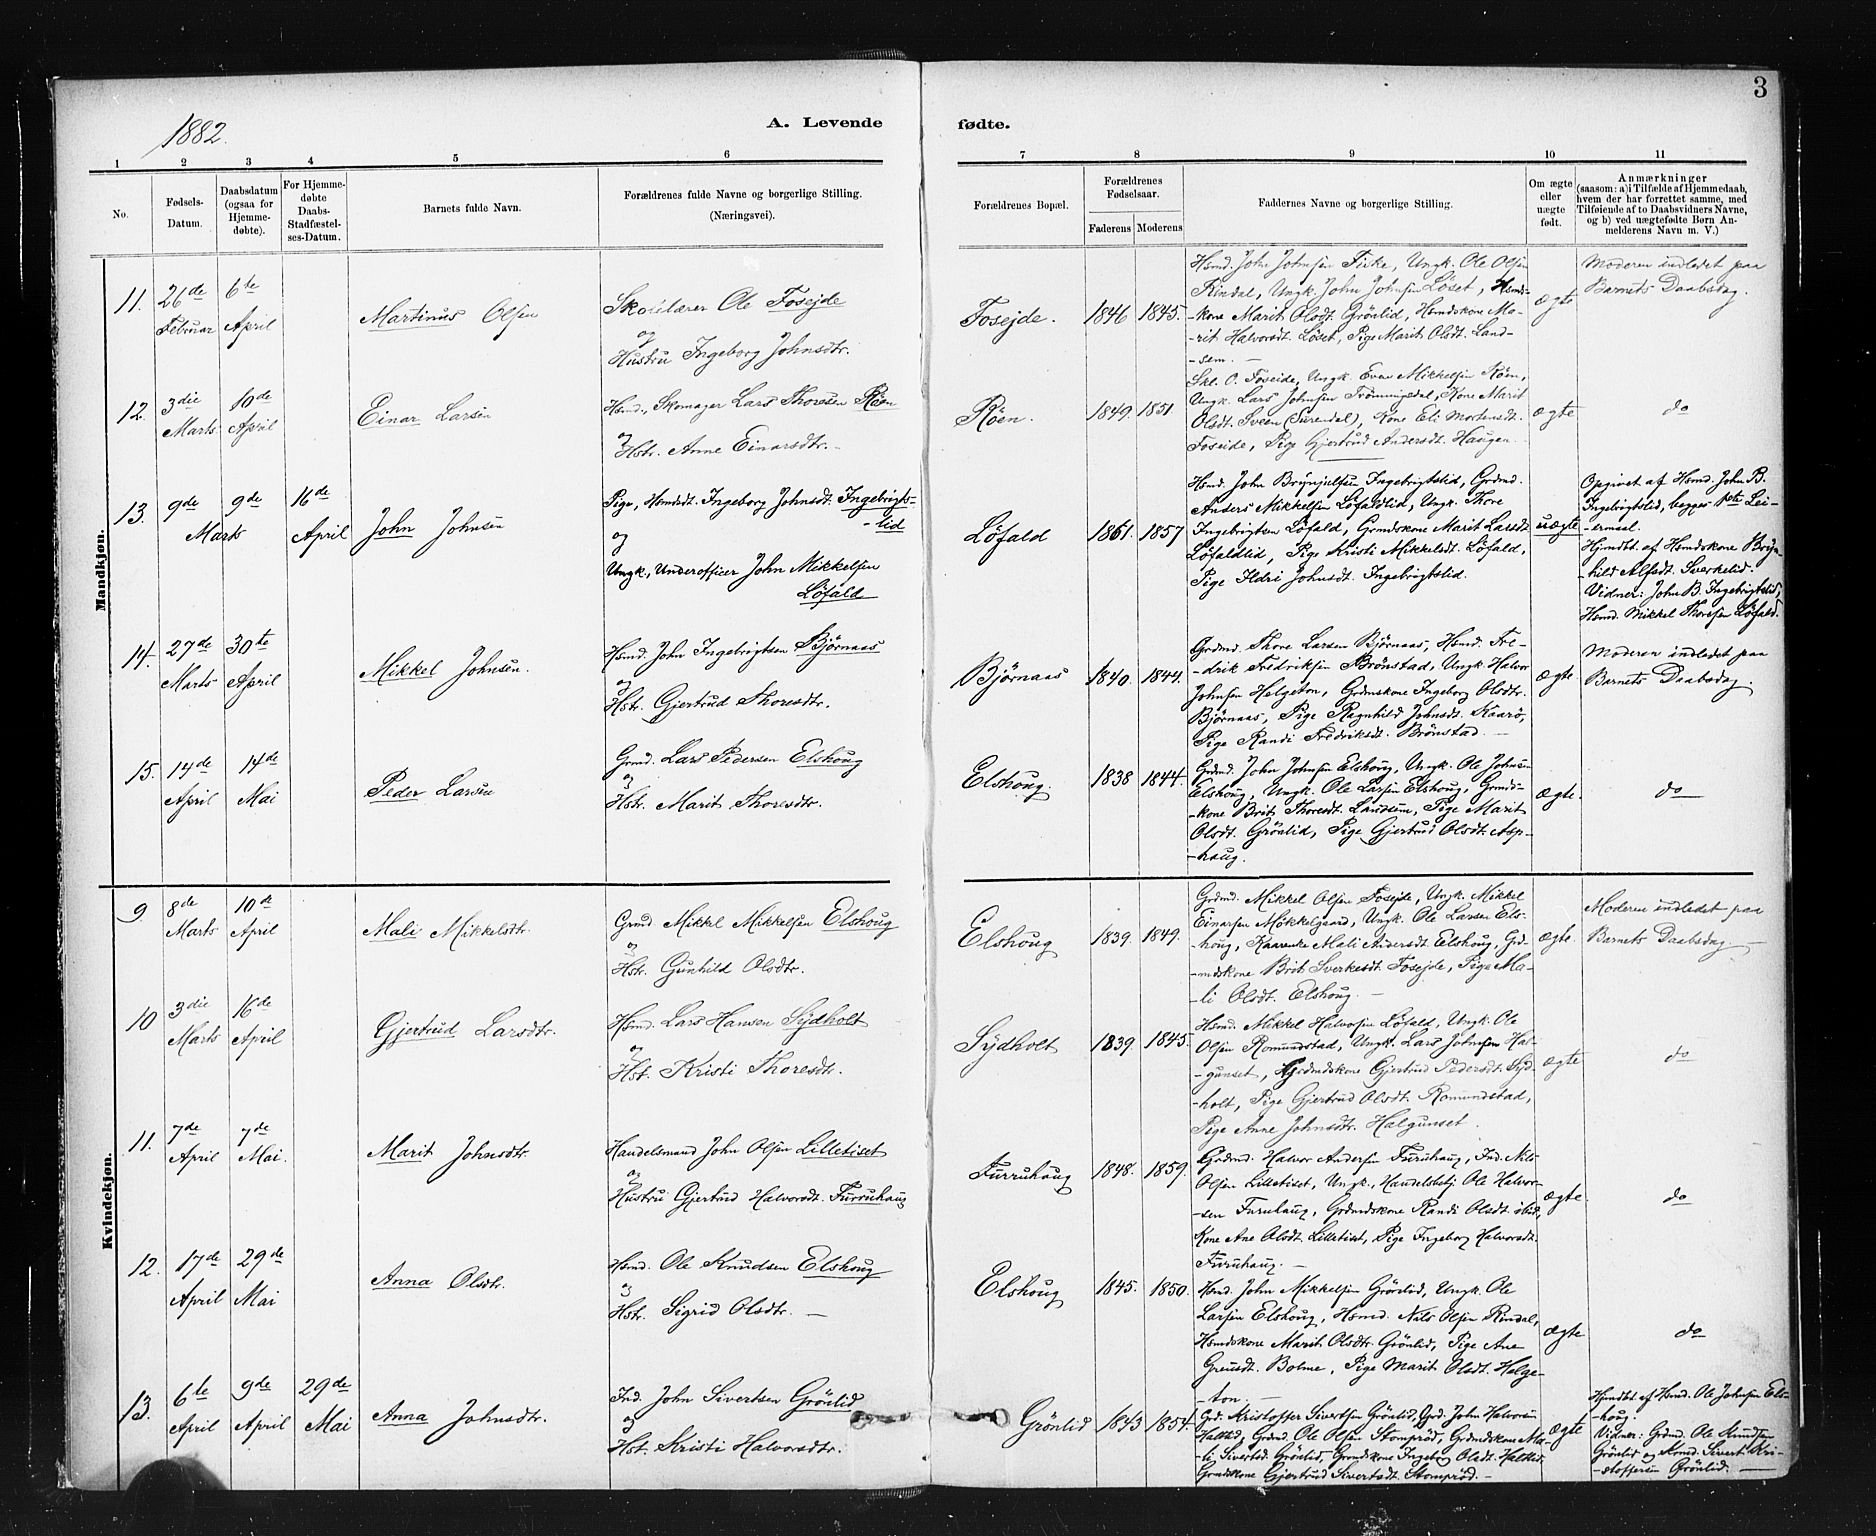 3
1882.
A. Levende
fødte.
1 2 3 4 5 6 7 8 9 10 11
No.
Fødsels-
Datum.
Daabsdatum
(ogsaa for
Hjemme-
døbte).
For Hjemme-
døbte
Daabs-
Stadfæstel-
ses-Datum.
Barnets fulde Navn.
Forældrenes fulde Navne og borgerlige Stilling.
(Næringsvei).
Forældrenes Bopæl.
Forældrenes
Fødselsaar.
Faderens Moderens
Faddernes Navne og borgerlige Stilling.
Om ægte
eller
uægte
født.
Anmærkninger
(saasom: a) i Tilfælde af Hjemmedaab,
hvem der har forrettet samme, med
Tilføiende af to Daabsvidners Navne,
og b) ved uægtefødte Børn An-
melderens Navn m. V.)
Mandkjøn.
11. 26de Februar
6te April
Martinus Olsen
Skolelærer Ole Fosejde
og
Hustru Ingeborg Johnsdtr.
Fosejde.
1846 1845.
Hsmd. John Johnsen Fiske, Ungk. Ole Olsen
Rindal, Ungk. John Johnsen Løset, Hsmds-
kone Marit Olsdt. Grönlid, Hsmdskone Ma-
rit Halvorsdt. Löset, Pige Marit Olsdt. Land-
-sem. —
ægte
Moderen indledet paa
Barnets Daabsdag.
12. 3die Marts
10de April
Einar Larsen
Hsmd., Skomager Lars Thoresen Röen
og
Hstr. Anne Einarsdtr. —
Röen.
1849. 1851.
Skl. O. Foseide, Ungk. Even Mikkelsen Röen,
Ungk. Lars Johnsen Trönningsdal, Kone Marit
Olsdt. Sveen (Surendal), Kone Eli Mortensdt.
Foseide, Pige Gjertrud Andersdt. Haugen.
ægte
do
13. 9de Marts
9de
16de April
John Johnsen
Pige, Hsmdsdt. Ingeborg Johnsdt. Ingebrigts-
-lid
og
Ungk., Underofficer John Mikkelsen
Löfald
Löfald
1861. 1857
Hsmd. John Brynjelsen Ingebrigtslid, Grdmd.
Anders Mikkelsen Löfaldlid, Ungk. Thore
Ingebrigtsen Löfald, Grmdskone Marit Larsdt.
Löfaldlid, Pige Kristi Mikkelsdt. Löfald,
Pige Ildri Johnsdt. Ingebrigtslid.
uægte
Opgivet af Hsmd. John B.
Ingebrigtslid, begges 1ste Lei-
-ermaal.
Hjmdbt. af Hsmdskone Bryn-
-hild Alfsdt. Sverkelid.
Vidner: John B. Ingebrigtslid,
Hsmd. Mikkel Thoresen Löfald.
14. 27de Marts
30te April
Mikkel Johnsen.
Hsmd. John Ingebrigtsen Bjørnaas
og
Hstr. Gjertrud Thoresdtr.
Bjørnaas
1840. 1844.
Grdmd. Thore Larsen Bjørnaas, Hsmd. Fre-
-drik Fredriksen Brönstad, Ungk. Halvor
Johnsen Helgeton, Grdmskone Ingeborg Olsdtr.
Bjørnaas, Pige Ragnhild Johnsdt. Kaarö,
Pige Randi Fredriksdt. Brönstad. —
ægte.
Moderen indledet paa
Barnets Daabsdag.
15. 14de April
14de Mai
Peder Larsen
Grmd. Lars Pedersen Elshoug
og
Hstr. Marit Thoresdtr.
Elshoug.
1838 1844.
Grdmd. John Johnsen Elshoug, Ungk. Ole Johnsen
Elshoug, Ungk. Ole Larsen Elshoug, Grmds-
-kone Brit Thoresdt. Landsem, Pige Marit
Olsdt. Grönlid, Pige Gjertrud Olsdt. Asp-
-haug.
ægte.
do
Kvindekjøn.
9 8de Marts
10de April
Mali Mikkelsdtr.
Grmd Mikkel Mikkelsen Elshoug
og
Hstr. Gunhild Olsdtr.
Elshoug
1839. 1849.
Grdmd. Mikkel Olsen Fosejde, Ungk. Mikkel
Einarsen Møkkelgaard, Ungk. Ole Larsen Els-
-houg, Kaarenke Mali Andersdt. Elshoug, Grd-
-mdskone Brit Sverkesdt. Fosejde, Pige Ma-
-li Olsdt. Elshoug. —
ægte.
Moderen indledet paa
Barnets Daabsdag —
10 3die Marts
16de April
Gjertrud Larsdtr.
Hsmd. Lars Hansen Sydholt
og
Hst. Kristi Thoresdtr.
Sydholt
1839 1845.
Hsmd. Mikkel Halvorsen Löfald, Ungk. Ole
Olsen Romundstad, Ungk. Lars Johnsen Hal-
-gunset, Grdmdskone Gjertrud Pedersdt. Syd-
-holt, Pige Gjertrud Olsdt. Romundstad,
Pige Anne Johnsdtr. Halgunset.
ægte
do
11. 7de April
7de Mai.
Marit Johnsdtr.
Handelsmand John Olsen Lilletiset
og
Hustru Gjertrud Halvorsdt. Furruhaug
Furruhaug
1848. 1859.
Grdmd. Halvor Andersen Furuhaug, Ind. Nils
Olsen Lilletiset, Ungk., Handelsbetj. Ole Halvor-
-sen Furuhaug, Grdmdskone Randi Olsdt. ibid,
Kone Ane Olsdt. Lilletiset, Pige Ingeborg Halvorsdt.
Furuhaug. —
ægte.
do
12. 17de April
29de Mai
Anna Olsdtr.
Hsmd. Ole Knudsen Elshoug
og
Hstr. Sigrid Olsdtr. —
Elshoug
1845. 1850.
Hsmd. John Mikkelsen Grönlid, Ungk. Ole
Larsen Elshoug, Hsmd. Nils Olsen Rindal,
Hsmdskone Marit Olsdtr. Grönlid, Pige Ane
Bolme, Pige Marit Olsdt. Helge-
-ton. —
ægte
do
13. 6te April
9de April
29de Mai
Anna Johnsdtr.
Ind. John Sivertsen Grönlid
og
Hst. Kristi Halvorsdtr.
Grönlid
1843 1854.
Grd. Kristoffer Sivertsen Grönlid, Grd. John Halvorsen
Haltlid, Grdmd. Ole Olsen Stomprød, Grdmdskone Ma-
-li Sivertsd. Grönlid, Grmdskone Ingeborg Olsdt. Haltlid,
Grmdskone Gjertrud Sivertsdt Stomprød. —
ægte
Hjmdbt. af Hsmd. Ole Johnsen Els-
-houg.
Vidner: Grdmd. Ole Knudsen
Grönlid og Sivert Kri-
-stoffersen Grönlid. —